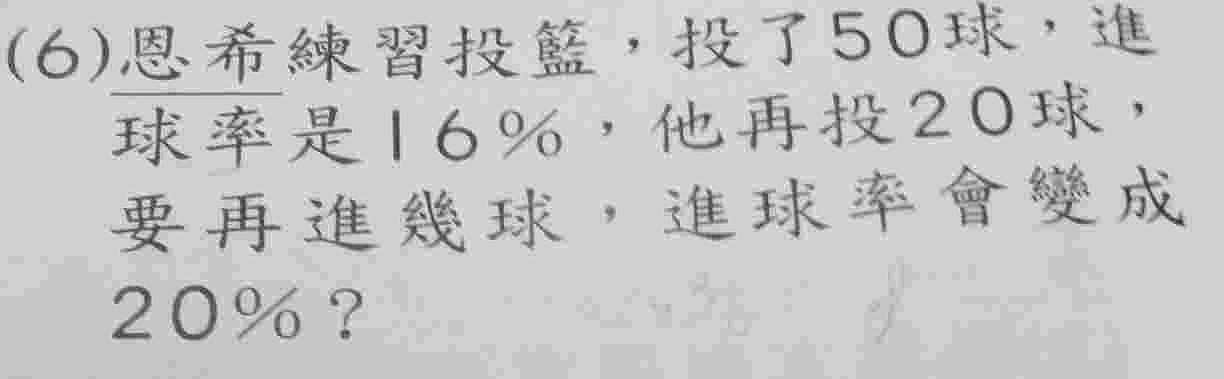 (6)恩希練習投籃，投了50球，進
球率是16%，他再投20球，
要再進幾球，進球率會變成
20%？